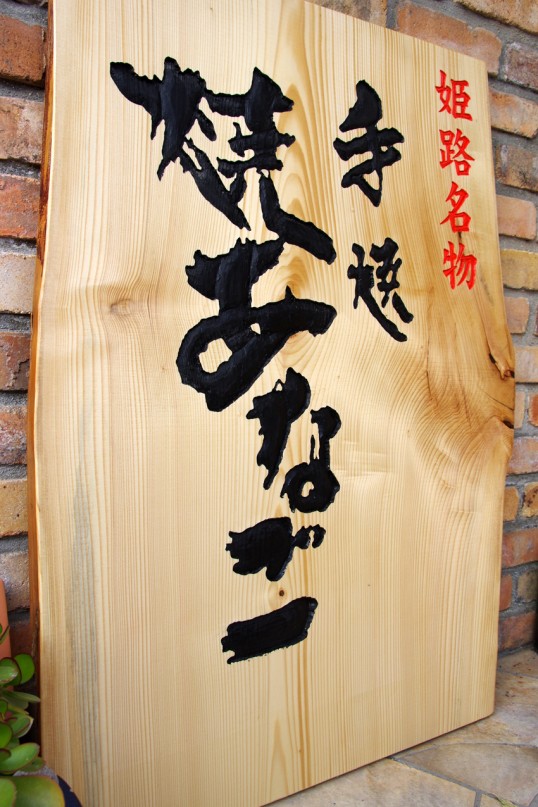 姫路名物
手焼
焼あなご